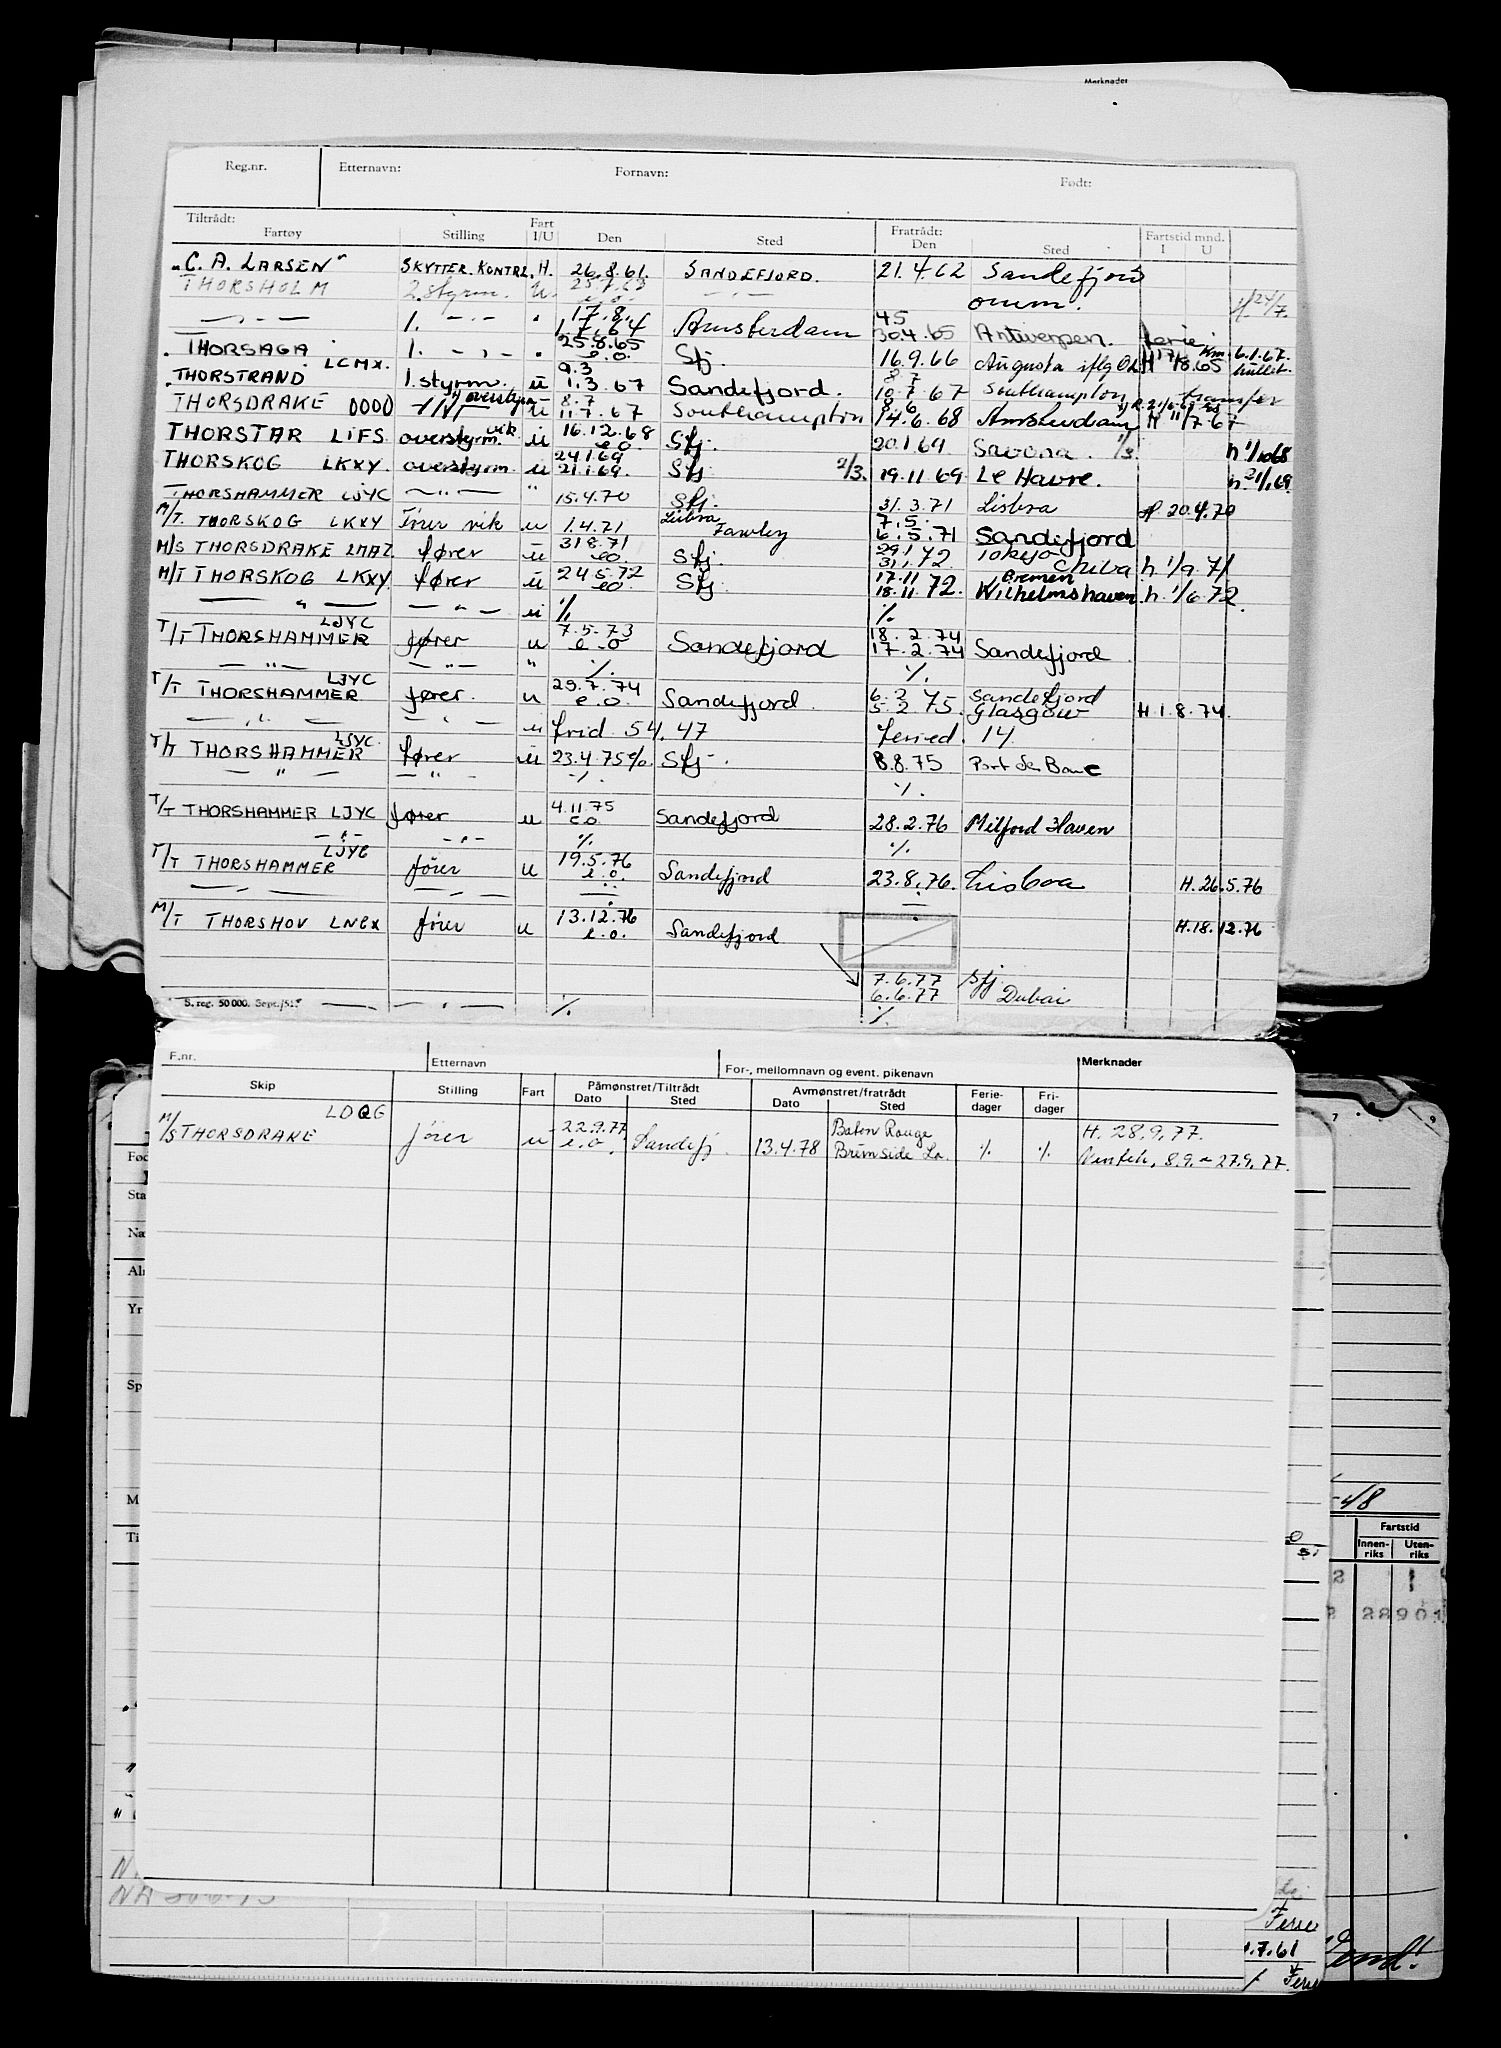 Merknader
Reg.nr. Etternavn: Fornavn: Født:
Tiltrådt: Fartøy Stilling Fart I/U Den Sted Fratrådt: Den Sted Fartstid mnd. I U
"C. A. LARSEN" SKYTTER. KONTRL. H. 26.8.61. SANDEFJORD. 21.4.62 Sandefjord
THORSHOLM 2. styrm. U. e.o. — " — omm. 24/7.
— " — 1. — " — " 17.8. 1.7.64 Amsterdam 45 30.4.65 Antwerpen. ferie
THORSAGA LCMX. 1. — " — " 25.8.65 e.o. Sfj. 16.9.66 Augusta H 17/8.65 6.1.67.
THORSTRAND 1. styrm. ü 9.3 1.3.67 Sandefjord. 8.7 10.7.67 Southampton transfer
THORSDRAKE overstyrm ü 8.7 11.7.67 Southampton 8.6 14.6.68 Amsterdam H 11/7.67
THORSTAR LIFS overstyrm. vik ü 16.12.68 e.o. Sfj. 20.1.69 Savona. 1/3. h 1/1068
THORSKOG LKXY overstyrm. ü 24.1.69 21.1.69. Sfj 2/3. 19.11.69 Le Havre. h. 21/1.69.
THORSHAMMER LJYC — " — " 15.4.70 Sfj. 31.3.71 Lisboa H 20.4.70
M/T. THORSKOG LKXY Fører vik u 1.4.71 Lisboa Fawley 7.5. 6.5.71 Sandefjord
M/S THORSDRAKE fører ü 31.8.71 eo Sfj. 29.1 31.1.72 Tokyo Chiba h. 1/9.71
M/T THORSKOG LKXY. fører ü 24.5.72 eo Sfj. 17.11 18.11.72. Bremen Wilhelmshaven. h. 1/6.72.
— " — — " — ü ./. ./.
T/T THORSHAMMER LJYC fører u 7.5.73 e.o Sandefjord 18.2.74 17.2.74 Sandefjord.
— " — — " — " ./. ./.
T/T THORSHAMMER LJYC fører. u 29.7.74 e.o. Sandefjord. 6.2 5.2.75. Sandefjord Glasgow H. 1.8.74.
— " — — " — u frid 54.47 feried. 14
T/T THORSHAMMER LJYC. fører ü 23.4.75 e/o. Sfj. 8.8.75 Port de Bouc
— " — — " — ./. ./.
T/T THORSHAMMER LJYC fører u 4.11.75 e.o. Sandefjord 28.2.76 Milford Haven
— " — — " — ./. ./.
T/T THORSHAMMER LJYC fører u 19.5.76 e.o. Sandefjord 23.8.76. Lisboa H. 26.5.76
— " — — " —
M/T THORSHOV LNCX fører u 13.12.76 e.o. Sandefjord H. 18.12.76
7.6.77 Sfj.
6.6.77 Dubai
S. reg. 50 000. Sept./51. — — " — ./. ./.
F.nr. Etternavn For-, mellomnavn og event. pikenavn Merknader
Skip Stilling Fart Påmønstret/Tiltrådt Dato Sted Avmønstret/fratrådt Dato Sted Ferie-dager Fri-dager
M/S THORSDRAKE LDQG fører u 22.9.77 e.o. Sandefj. 13.4.78 Baton Rouge ./. ./. H. 28.9.77.
8.9. - 27.9.77.
Fød
Sta
Næ
Al
Yr
Sp
M
Ti
-48
Fartstid
Innen-riks Uten-riks
2 1
28901
Ferie
.7.61
Ferie